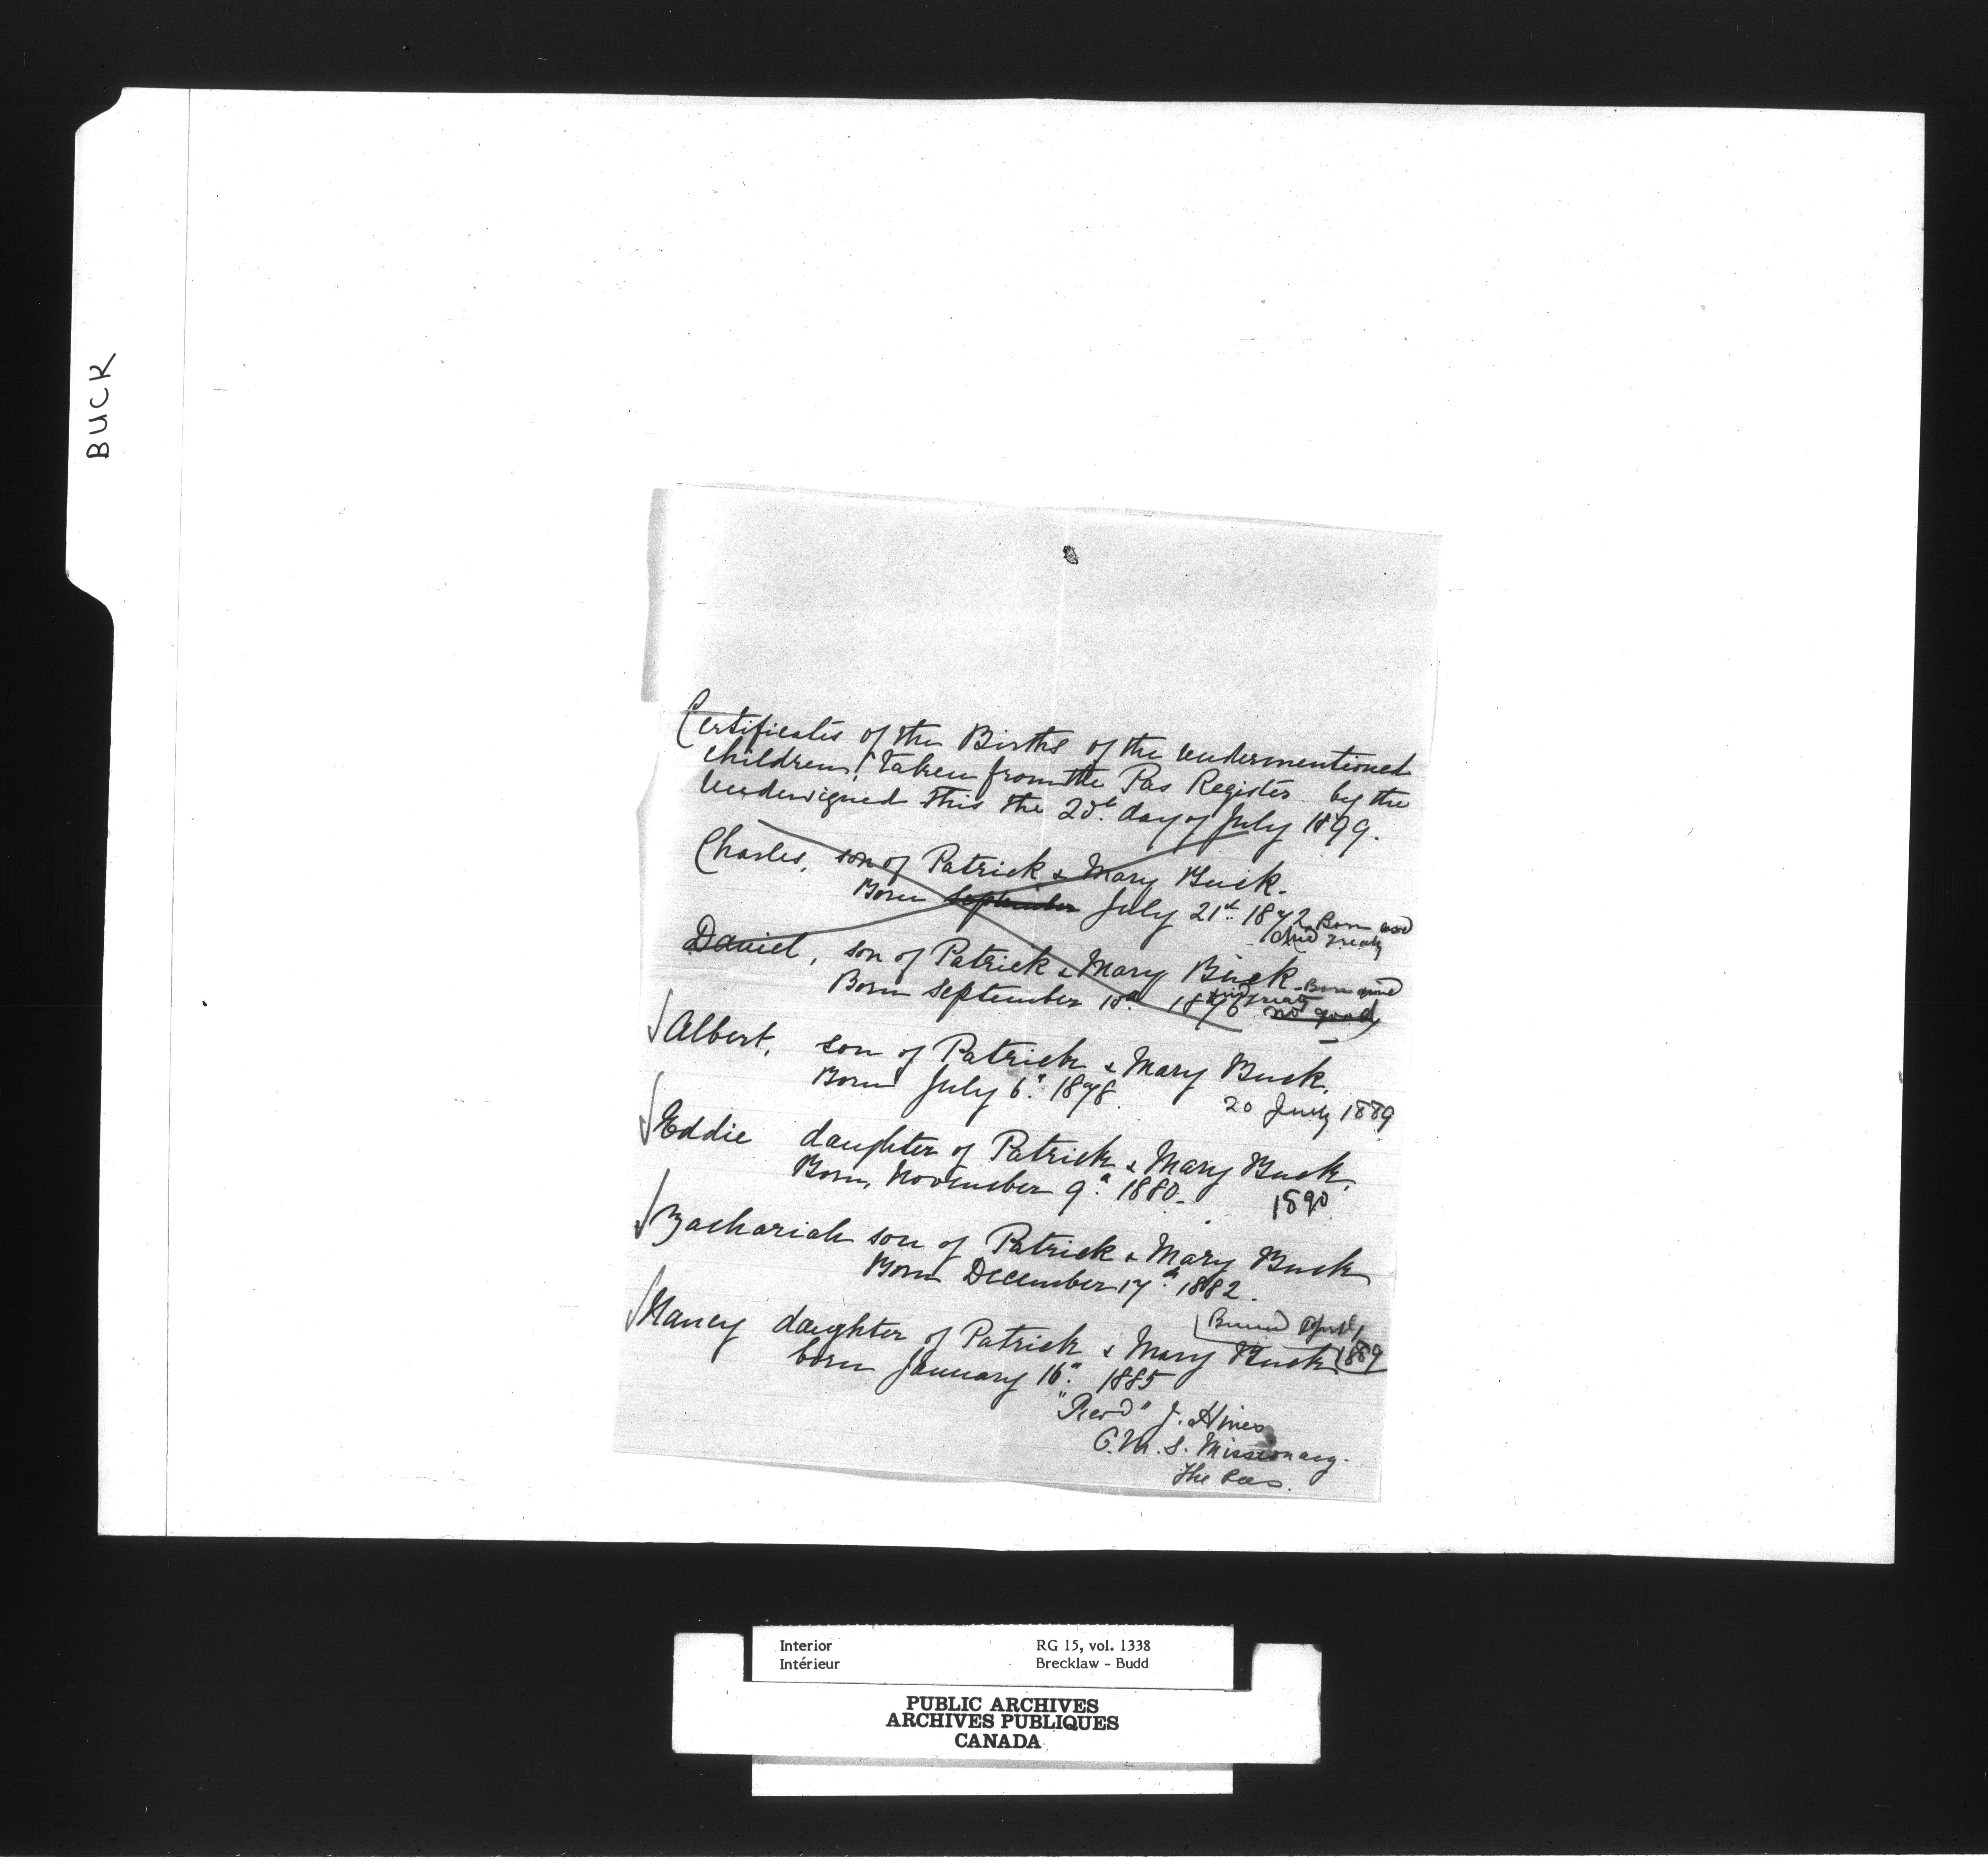 BUCK
Certificates of the Births of the undermentioned
children, taken from the Pas Register by the
Undersigned this the day of July 1899.
Charles, son of Patrick & Mary Buck.
Born September July 21st 1872 Born and
died Treaty
Daniel, son of Patrick & Mary Buck - Born and
died Treaty
Born September 1876 no good
Albert, son of Patrick & Mary Buck.
Born July 6th 1878.
20 July 1889
Eddie daughter of Patrick & Mary Buck.
Born, November 9th 1880.
1890
Zachariah son of Patrick & Mary Buck
Born December 17th 1882.
Buried April 1,
1889
Nancy daughter of Patrick & Mary Buck
born January 16th 1885
"Revd" J. Hines
C.M.S. Missionary.
The Pas.
Interior RG 15, vol. 1338
Intérieur Brecklaw - Budd
PUBLIC ARCHIVES
ARCHIVES PUBLIQUES
CANADA